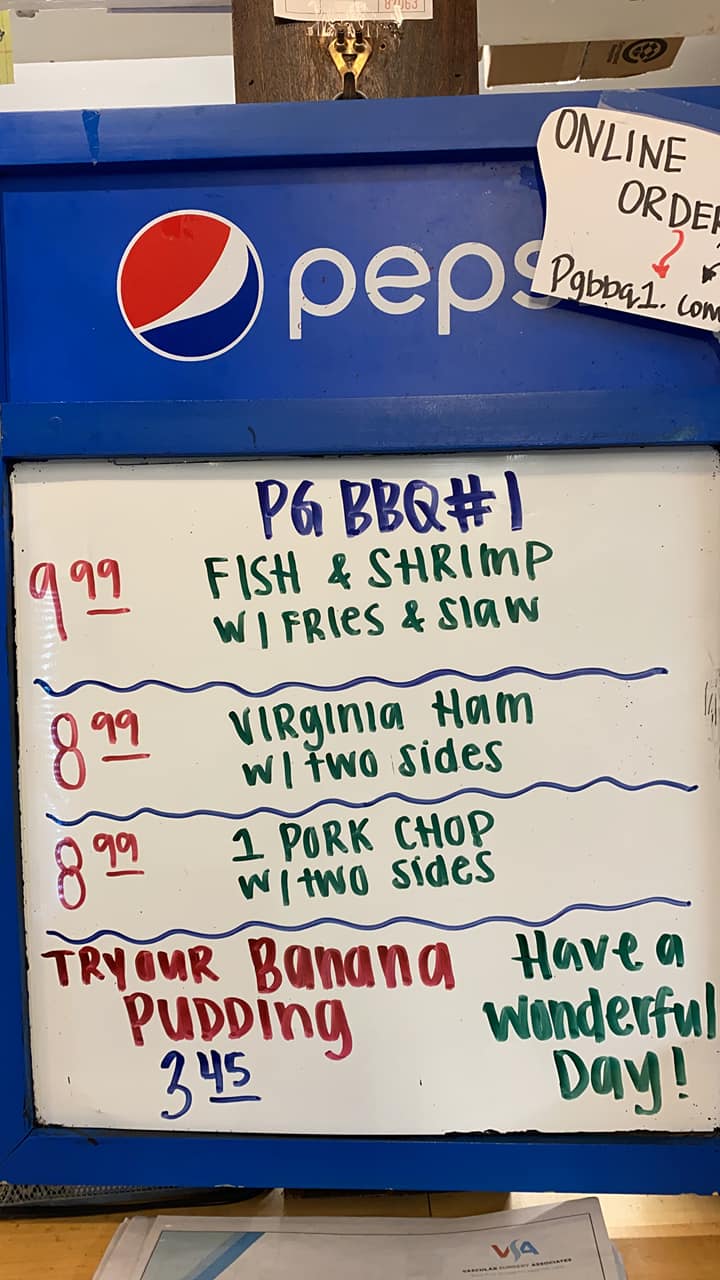 87063
ONLINE
ORDER
Pgbbq1.com
peps
PG BBQ#1
9 99 FISH & SHRIMP
W/ FRIES & Slaw
8 99 VIRginia Ham
w/ two sides
8 99 1 PORK CHOP
w/ two sides
TRY OUR Banana
PUDDing
3 45
Have a
wonderful
Day!
VSA
VASCULAR SURGERY ASSOCIATES